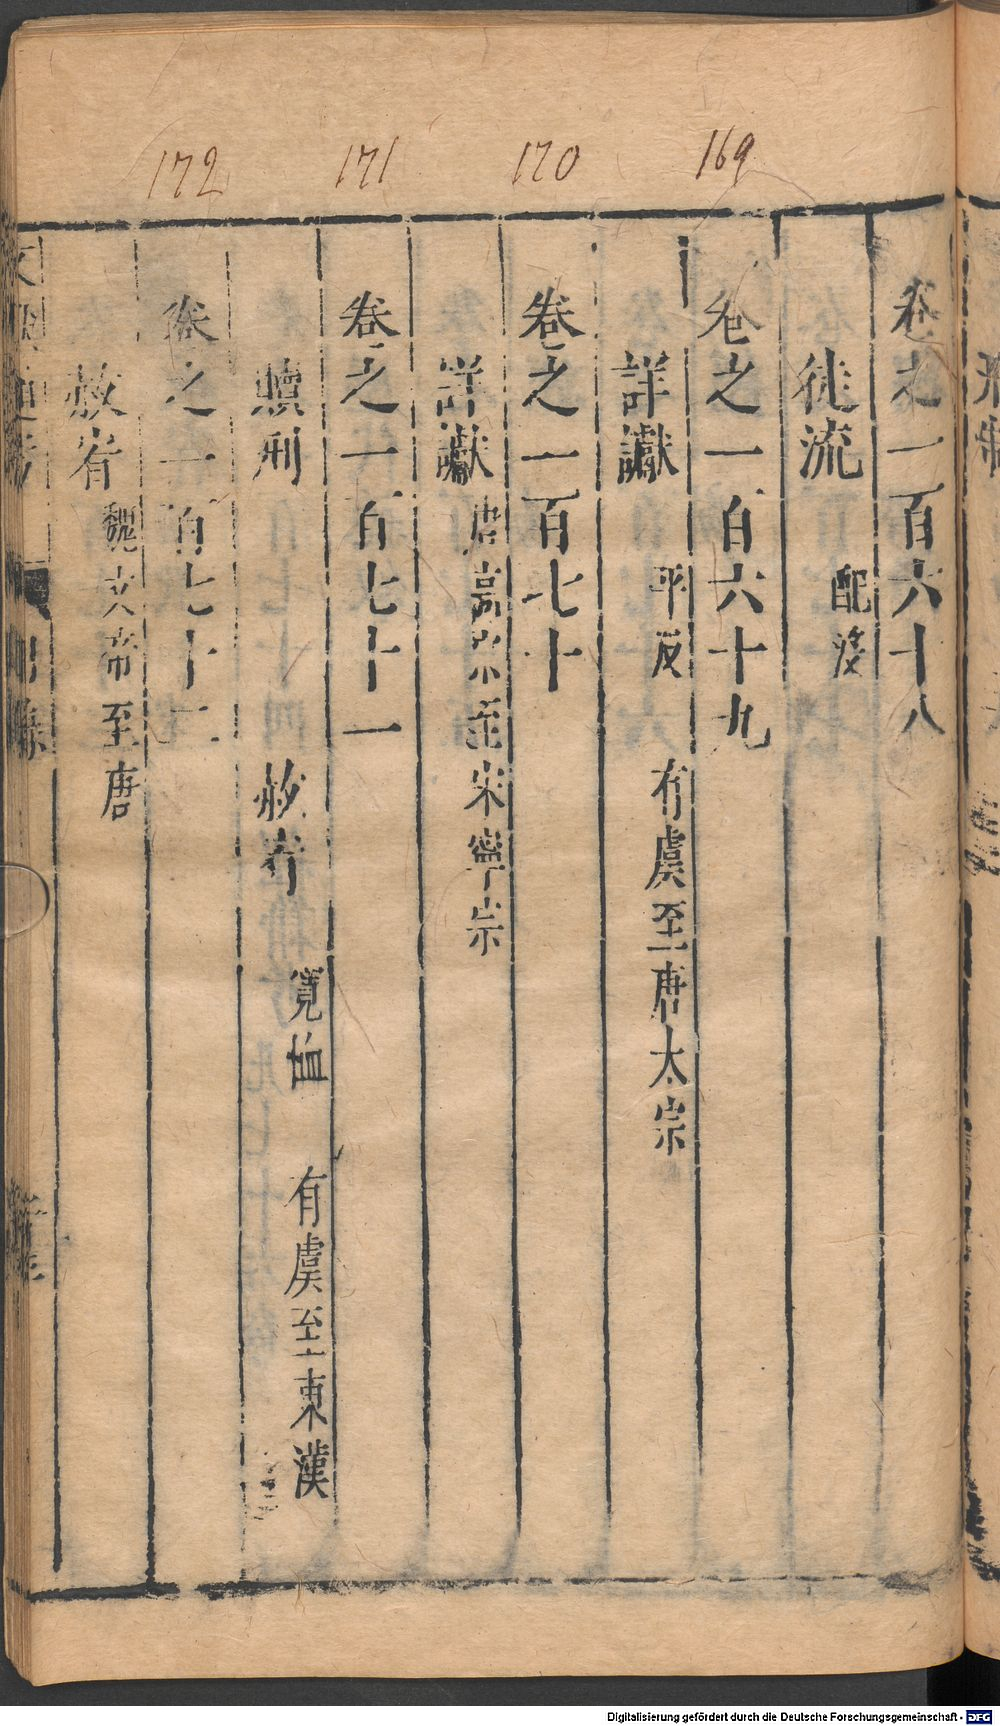 172 171 170 169
卷之一百六十八
徒流 配沒
卷之一百六十九
詳讞 平反 有虞至唐太宗
卷之一百七十
詳讞 唐高宗至宋寧宗
卷之一百七十一
贖刑 赦宥 寬恤 有虞至東漢
卷之一百七十二
赦宥 魏文帝至唐
Digitalisierung gefördert durch die Deutsche Forschungsgemeinschaft - DFG